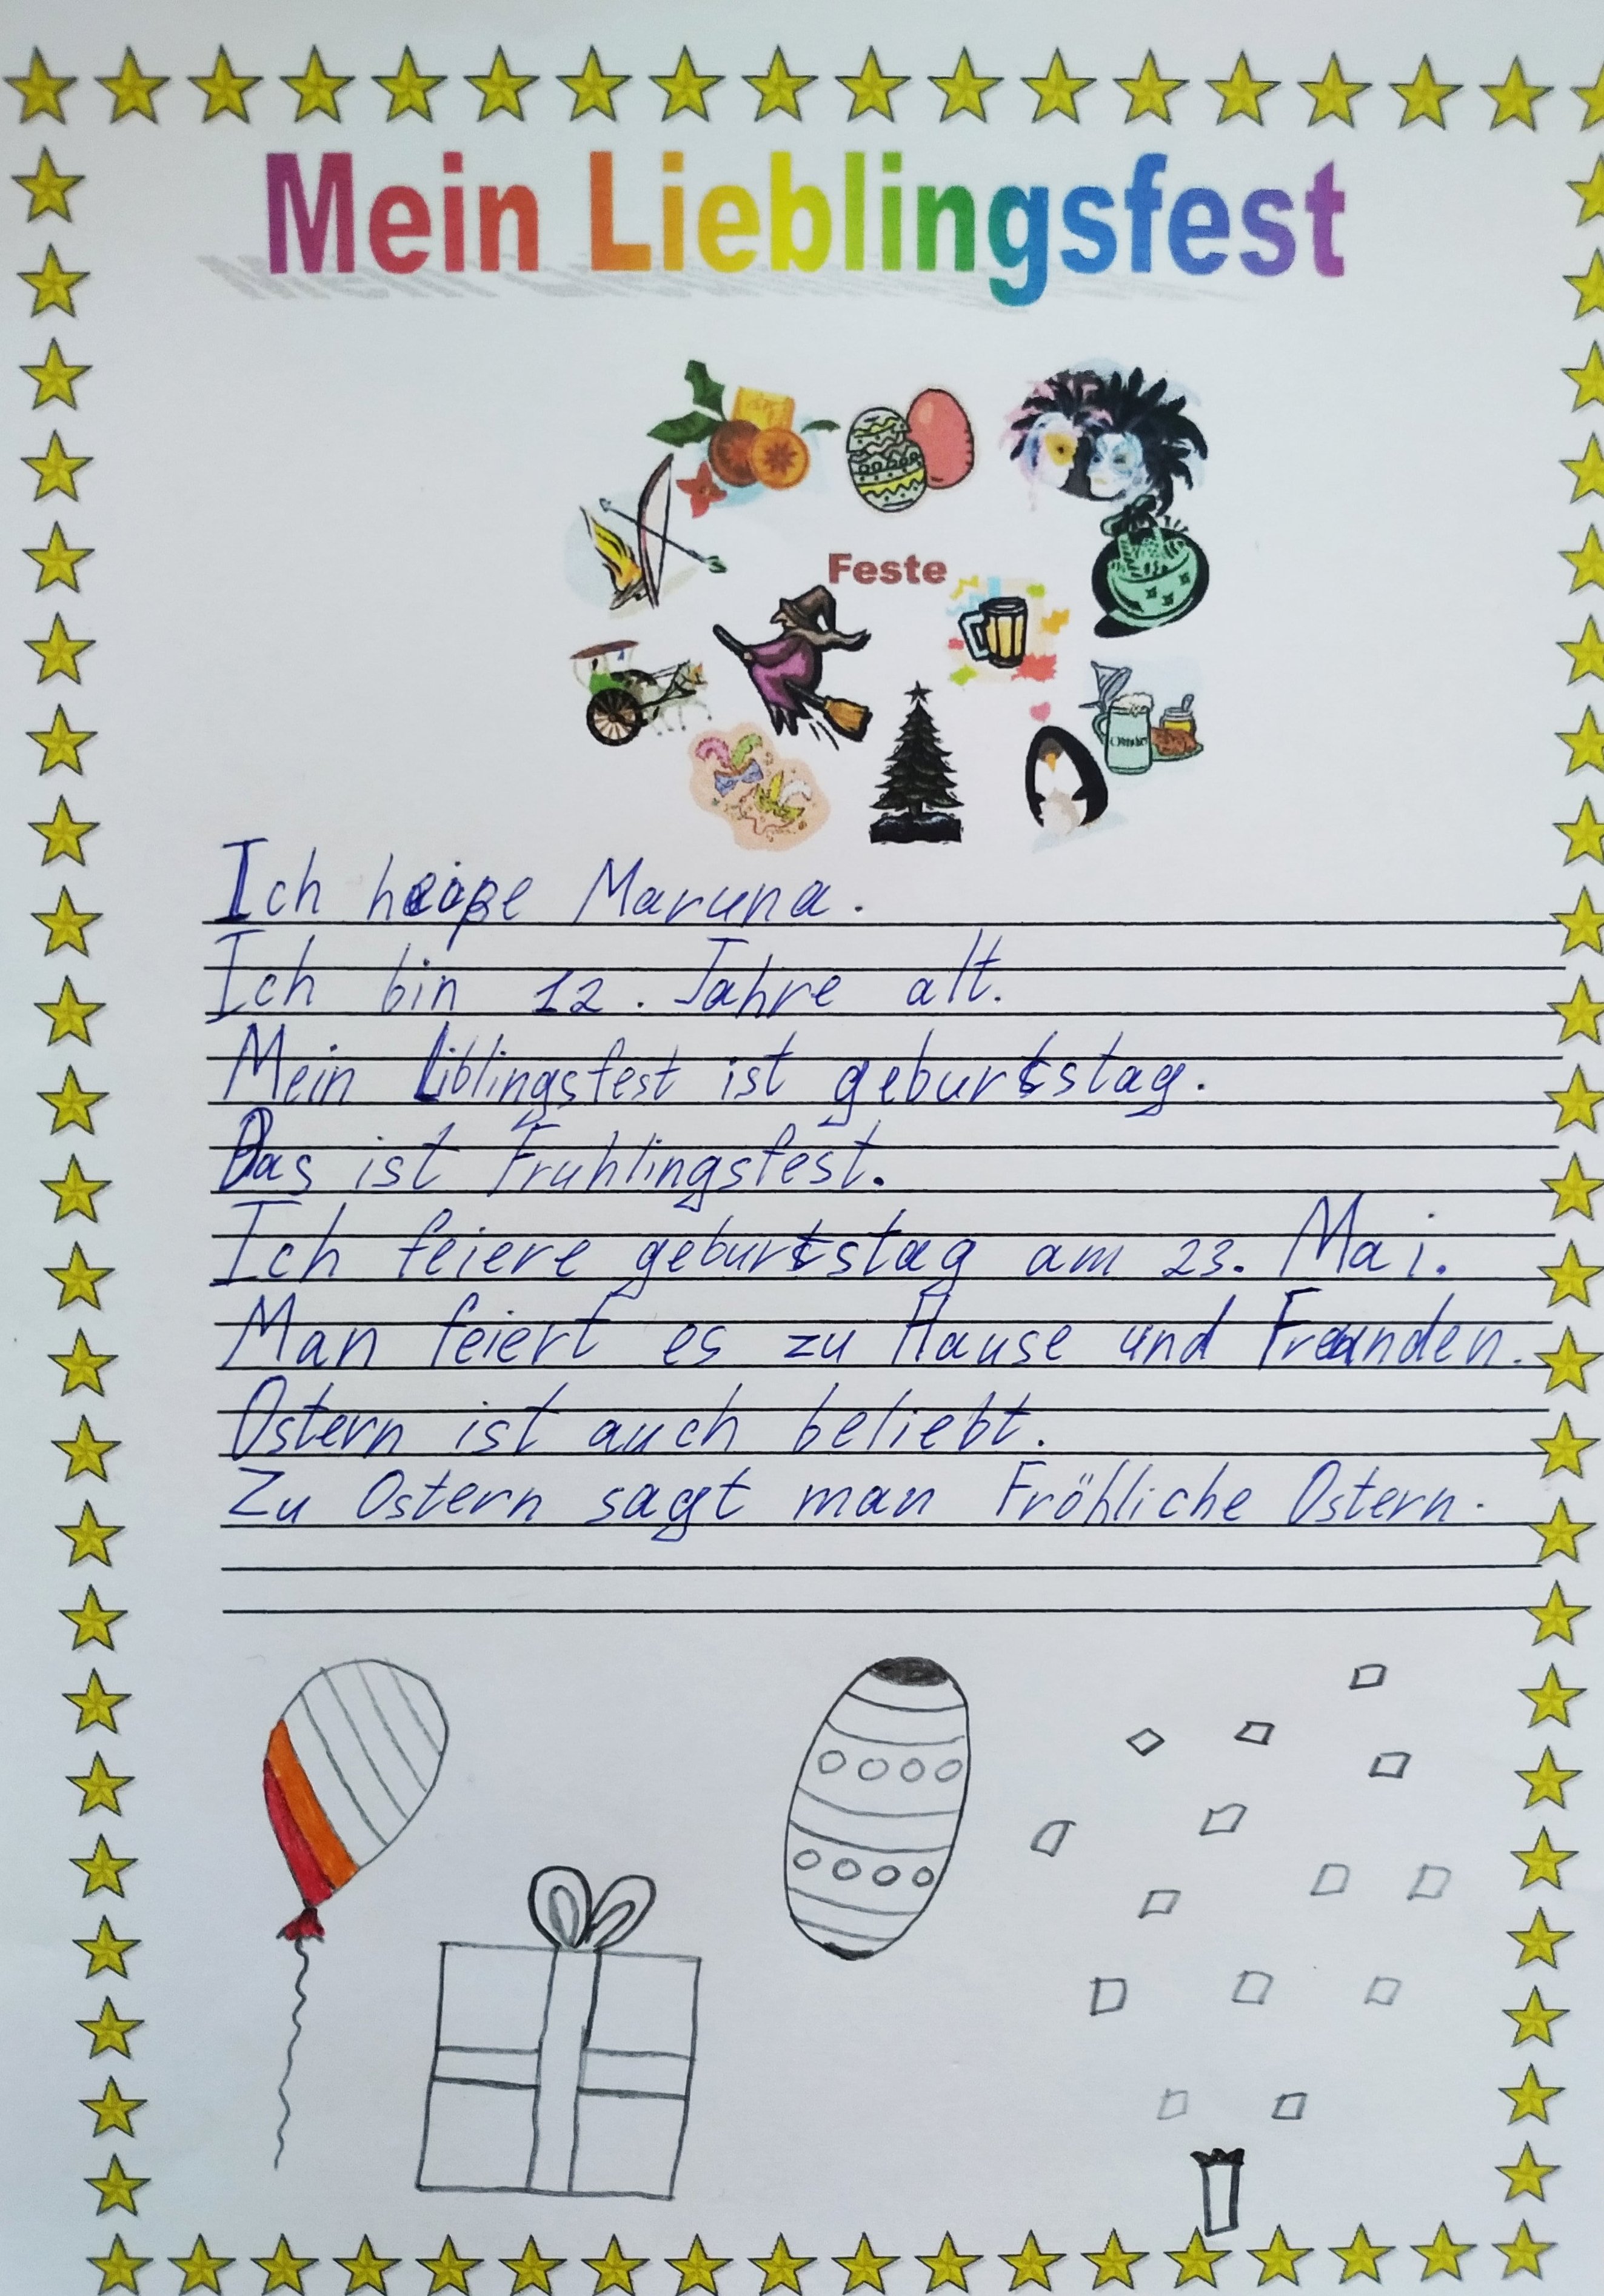 Mein Lieblingsfest
Feste
Ich heiße Maruna.
Ich bin 12. Jahre alt.
Mein Liblingsfest ist geburtstag.
Das ist Fruhlingsfest.
Ich feiere geburtstag am 23. Mai.
Man feiert es zu Hause und Freunden.
Ostern ist auch beliebt.
Zu Ostern sagt man Fröhliche Ostern.